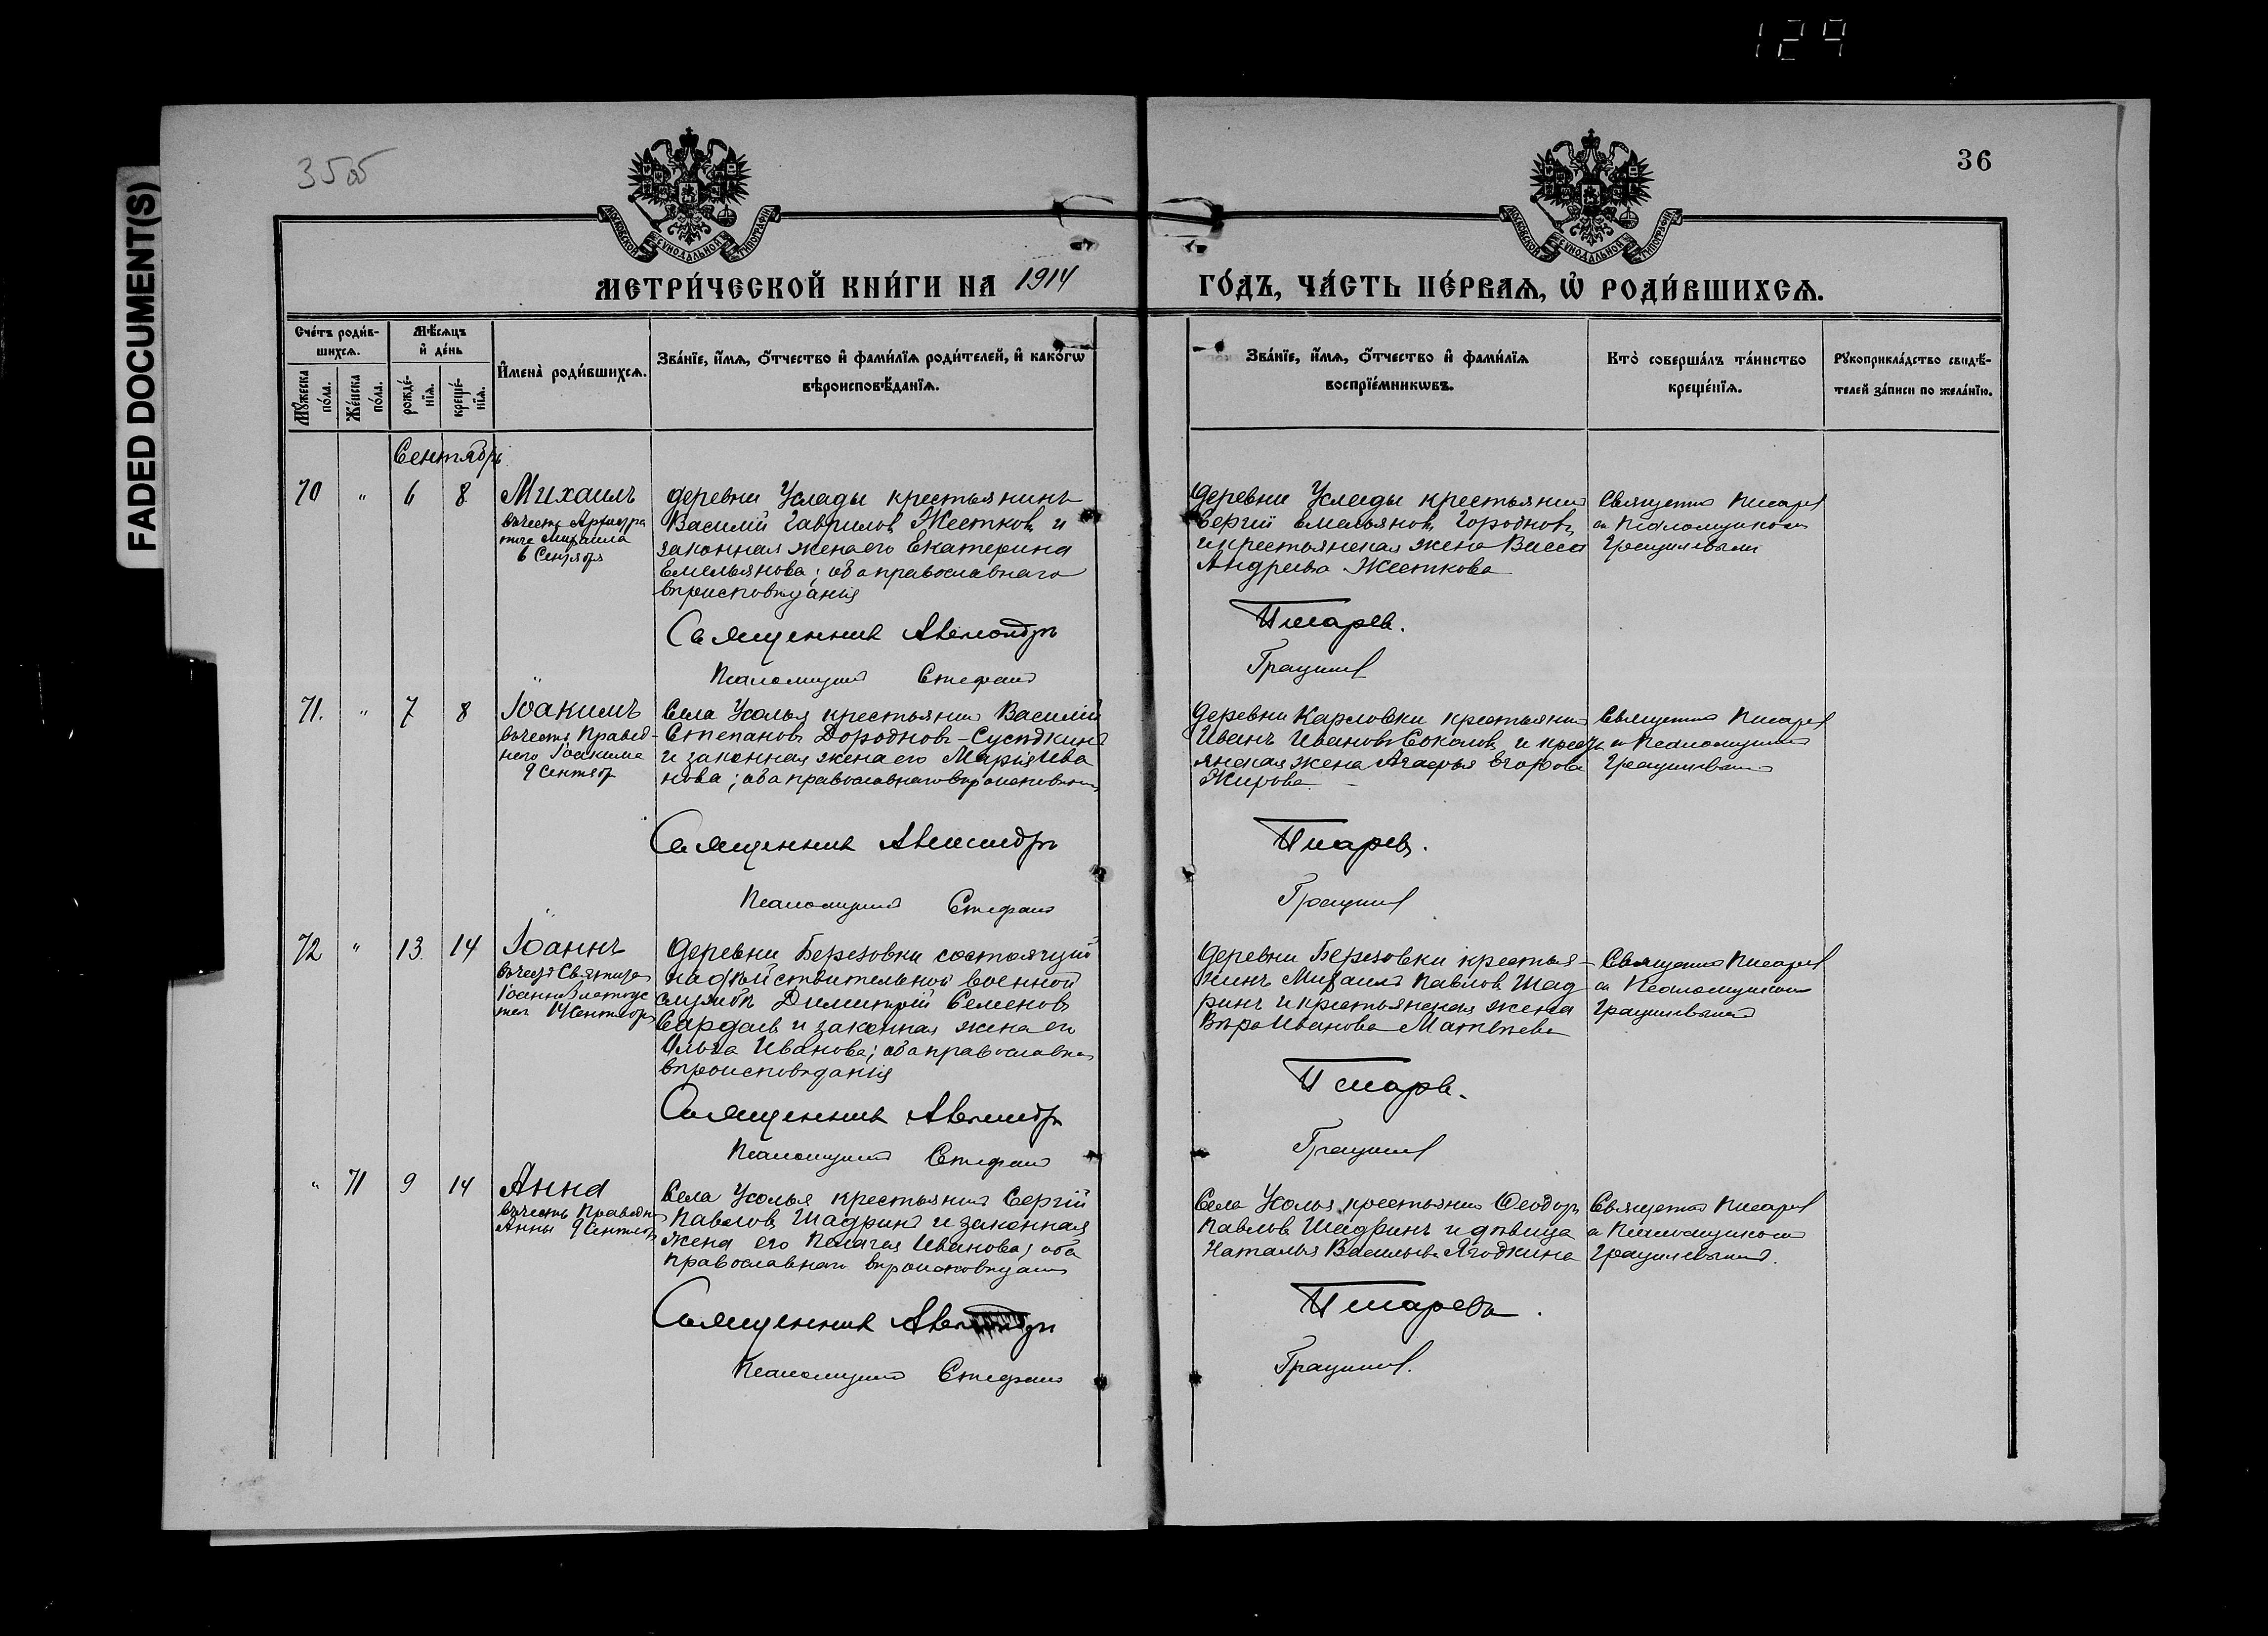 129
FADED DOCUMENT(S)
35об
36
МОСКОВСКОЙ СѴНОДАЛЬНОЙ ТИПОГРАФІИ
МОСКОВСКОЙ СѴНОДАЛЬНОЙ ТИПОГРАФІИ
МЕТРИ́ЧЕСКОЙ КНИ́ГИ НА 1914
ГО́ДЪ, ЧА́СТЬ ПЕ́РВАѦ, Ѡ҆ РОДИ́ВШИХСѦ.
Сче́тъ роди́в-
шихсѧ.
Мꙋ́жеска по́ла.
Же́нска по́ла.
Мѣ́сѧцъ
и҆ де́нь
рожде́-
нїѧ.
креще́-
нїѧ.
И҆мена̀ роди́вшихсѧ.
Зва́нїе, и҆́мѧ, ѻ҆́тчество и҆ фами́лїѧ роди́телей, и҆ како́гѡ
вѣроисповѣ́данїѧ.
Зва́нїе, и҆́мѧ, ѻ҆́тчество и҆ фами́лїѧ
воспрїе́мникѡвъ.
Кто̀ соверша́лъ та́инство
креще́нїѧ.
Рꙋкоприкла́дство свидѣ́-
телей за́писи по жела́нїю.
Сентябрь
70 " 6 8
Михаилъ
въ честь Архистра
тига Михаила
6 Сентября
деревни Услады крестьянинъ
Василій Гаврилов Жестков и
законная жена его Екатерина
Емельянова; оба православнаго
вѣроисповѣданія
Священник Александръ
Псаломщикъ Стефанъ
деревни Услады крестьянин
Сергій Емельянов Городновъ
и крестьянская жена Васса
Андреева Жесткова
Писарев.
Грацилев
Священникъ Писарев
съ Псаломщиком
Грацилевым
71. " 7 8
Іоакимъ
въ честь Правед-
наго Іоакима
9 Сентябр
Села Усолья крестьянин Василій
Степановъ Дороднов-Сусѣдкинъ
и законная жена его Марія Ива
нова; оба православнаго вѣроисповѣдан
Священник Александръ
Псаломщикъ Стефанъ
деревни Карловки крестьянин
Иванъ Ивановъ Соколов и кресть
янская жена Агафья Егорова
Жирова
Писарев.
Грацилев
Священникъ Писарев
съ Псаломщикомъ
Грацилевымъ
72 " 13. 14
Іоаннъ
въ честь Святителя
Іоанна Златоус
таго 14 Сентября
Деревни Березовки состоящій
на дѣйствительной военной
службѣ Димитрій Семенов
Сардаев и законная жена его
Ольга Иванова; оба православнаго
вѣроисповѣданія
Священник Александръ
Псаломщикъ Стефанъ
Деревни Березовки крестья-
нинъ Михаилъ Павлов Шад
ринъ и крестьянская жена
Вѣра Иванова Матвѣева
Писарев.
Грацилев
Священникъ Писарев
съ Псаломщиком
Грацилевымъ
" 71 9 14
Анна
въ честь Праведн
Анны 9 Сентябр
Села Усолья крестьянинъ Сергій
Павлов Шадринъ и законная
жена его Пелагея Иванова; оба
православнаго вѣроисповѣдан
Священник Александръ
Псаломщикъ Стефанъ
Села Усолья крестьянин Ѳеодоръ
Павлов Шадринъ и дѣвица
Наталья Васильева Ягодкина
Писаревъ.
Грацилев.
Священникъ Писарев
съ Псаломщиком
Грацилевымъ.